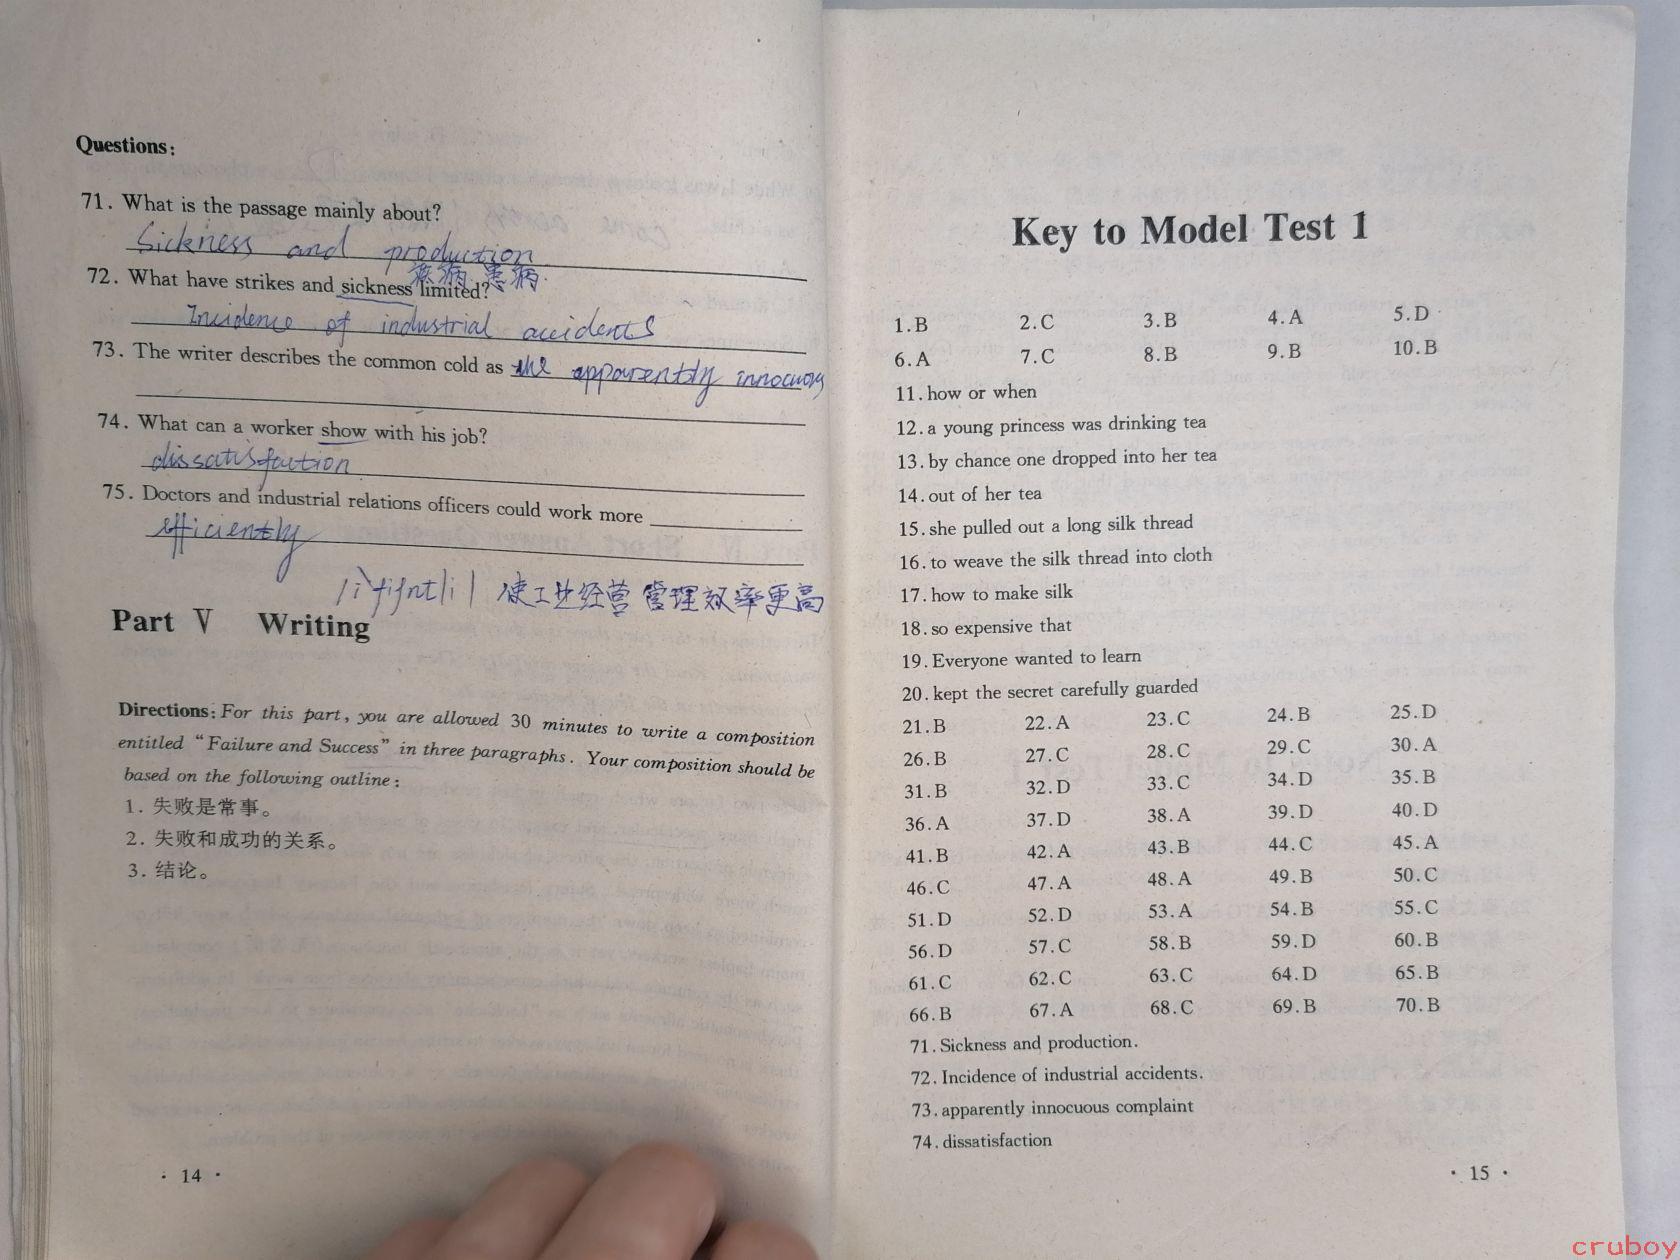 Questions:
71. What is the passage mainly about?
Sickness and production
疾病 患病
72. What have strikes and sickness limited?
Incidence of industrial accidents
73. The writer describes the common cold as the apparently innocuous
74. What can a worker show with his job?
dissatisfaction
75. Doctors and industrial relations officers could work more
efficiently
使工业经营管理效率更高
Part V Writing
Directions: For this part, you are allowed 30 minutes to write a composition
entitled “Failure and Success” in three paragraphs. Your composition should be
based on the following outline:
1. 失败是常事。
2. 失败和成功的关系。
3. 结论。
· 14 ·
Key to Model Test 1
1.B 2.C 3.B 4.A 5.D
6.A 7.C 8.B 9.B 10.B
11.how or when
12.a young princess was drinking tea
13.by chance one dropped into her tea
14.out of her tea
15.she pulled out a long silk thread
16.to weave the silk thread into cloth
17.how to make silk
18.so expensive that
19.Everyone wanted to learn
20.kept the secret carefully guarded
21.B 22.A 23.C 24.B 25.D
26.B 27.C 28.C 29.C 30.A
31.B 32.D 33.C 34.D 35.B
36.A 37.D 38.A 39.D 40.D
41.B 42.A 43.B 44.C 45.A
46.C 47.A 48.A 49.B 50.C
51.D 52.D 53.A 54.B 55.C
56.D 57.C 58.B 59.D 60.B
61.C 62.C 63.C 64.D 65.B
66.B 67.A 68.C 69.B 70.B
71.Sickness and production.
72.Incidence of industrial accidents.
73.apparently innocuous complaint
74.dissatisfaction
· 15 ·
cruboy